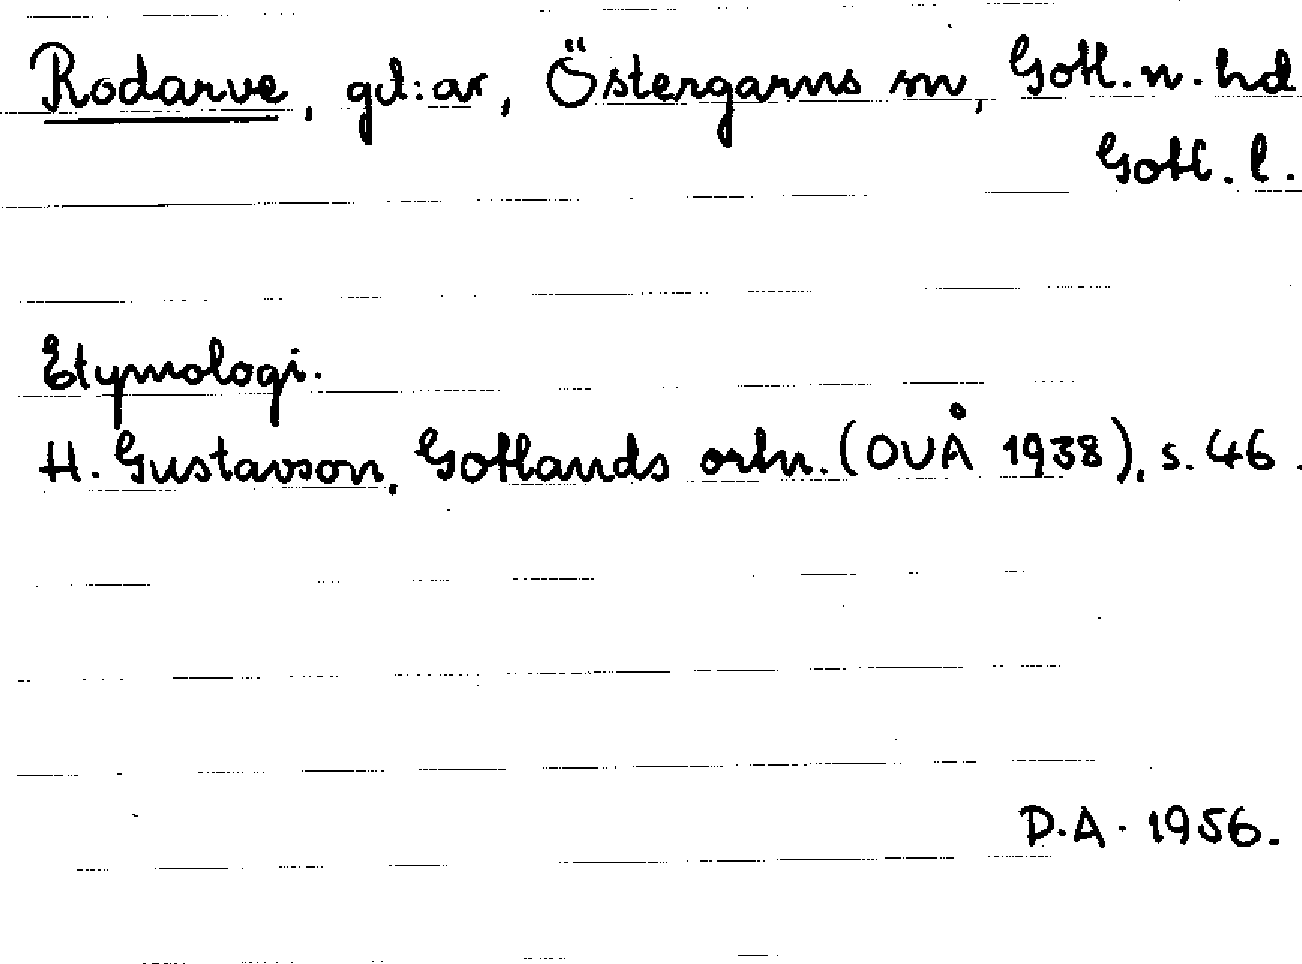 Rodarve, gd:ar, Östergarns sn, Gotl. n. hd
Gotl. l.
Etymologi.
H. Gustavson, Gotlands ortn. (OUÅ 1938), s. 46.
D.A. 1956.